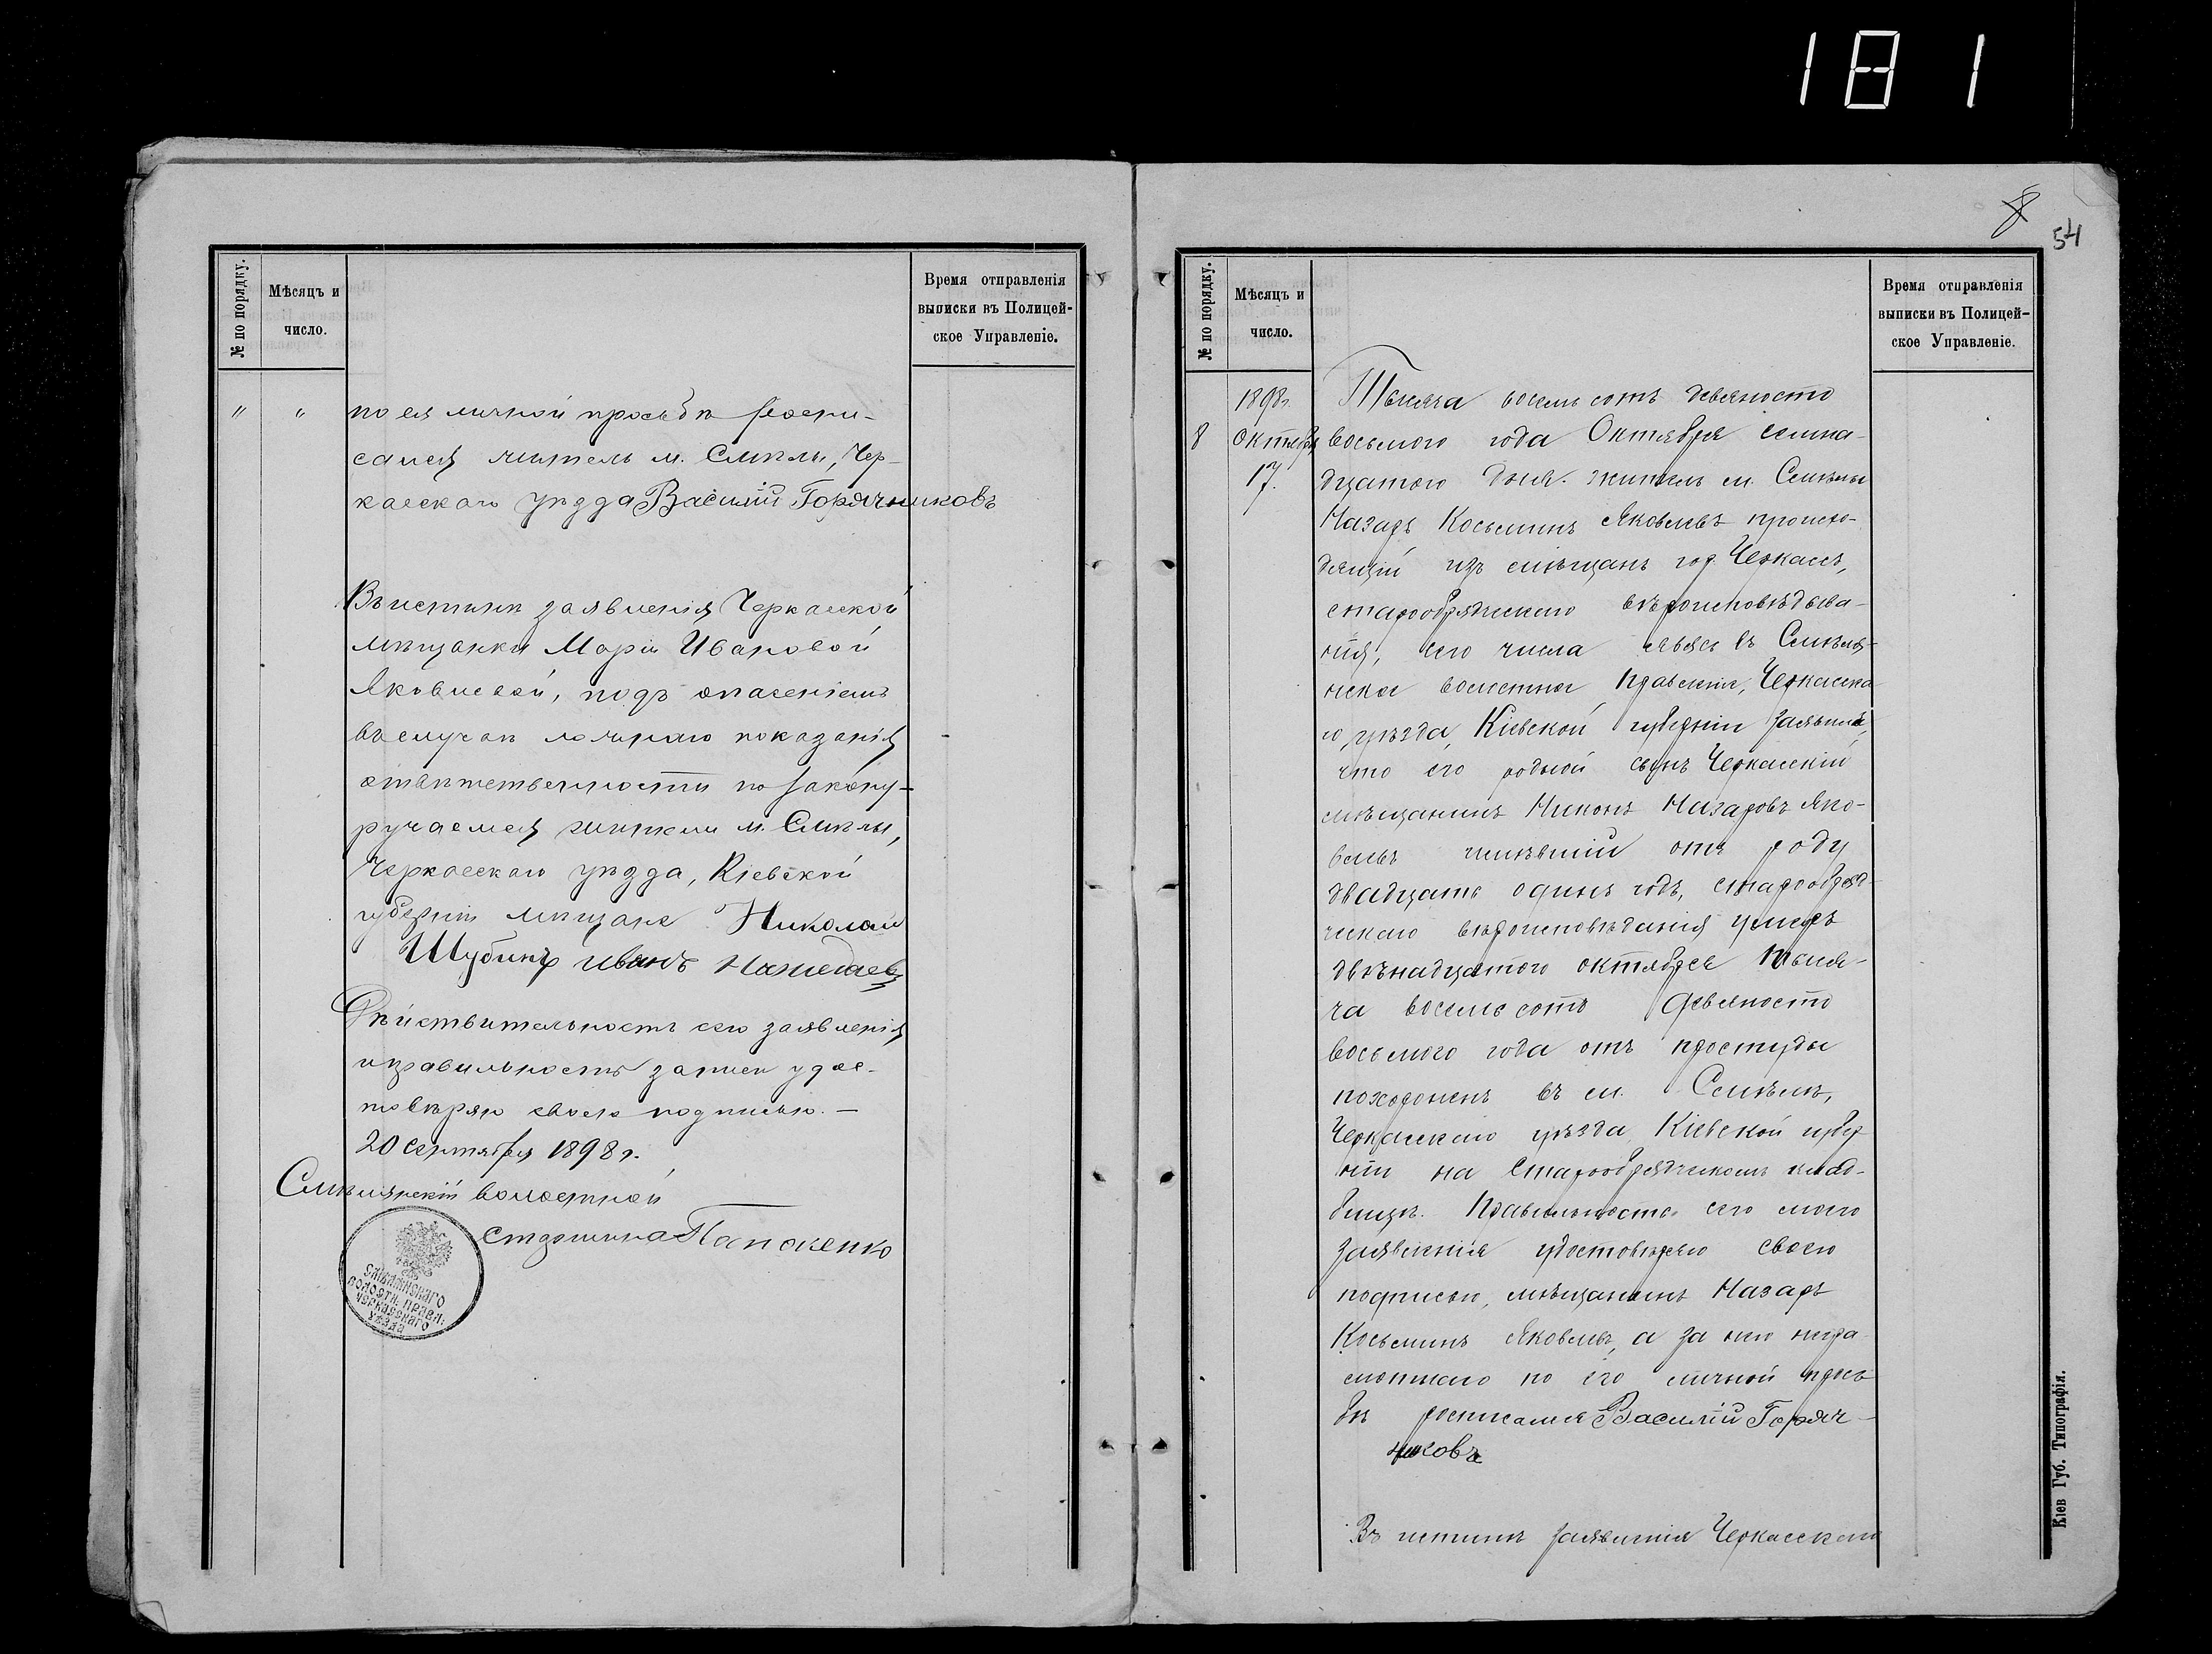 181
№ по порядку.
Мѣсяцъ и
число.
Время отправленія
выписки въ Полицей-
ское Управленіе.
" " по ея личной просьбѣ роспи-
сался житель м. Смѣлы, Чер-
касскаго уѣзда Василій Горячниковъ
Въ истинѣ заявленія Черкаской
мѣщанки Маріи Ивановой
Яковлевой, подъ опасеніемъ
въ случаѣ ложнаго показанія
отвѣтственности по закону-
ручаемся жители м. Смѣлы,
Черкасскаго уѣзда, Кіевской
губерніи мѣщане Николай
Шубинъ Иванъ
Дѣйствительность сего заявленія
и правильность записи удос-
товѣряю своею подписью. —
20 сентября 1898 г.
Смѣлянскій волостной
старшина Панасенко
СМѢЛЯНСКАГО
ВОЛОСТН. ПРАВЛ.
ЧЕРКАССКАГО
УѢЗДА
8
54
№ по порядку.
Мѣсяцъ и
число.
Время отправленія
выписки въ Полицей-
ское Управленіе.
1898 г. Тысяча восемь сотъ девяносто
8 Октября восьмого года Октября семна-
17. дцатого дня. житель м. Смѣлы
Назаръ Косьминъ Яковлевъ происхо-
дящій изъ мѣщанъ гор. Черкассъ,
старообрядческаго вѣроисповѣдыва-
нія, сего числа явясь въ Смѣлян-
ское волостное Правленіе, Черкасска-
го уѣзда, Кіевской губерніи заявилъ,
что его родной сынъ Черкасскій
мѣщанинъ Никонъ Назаровъ Яко-
влевъ имѣвшій отъ роду
двадцать одинъ годъ, старообряд-
ческаго вѣроисповѣданія умеръ
двѣнадцатого октября тыся-
ча восемь сотъ девяносто
восьмого года отъ простуды
похороненъ въ м. Смѣлѣ,
Черкасскаго уѣзда, Кіевской губер
ніи на Старообрядческомъ клад-
бищѣ. Правильность сего моего
заявленія удостовѣряю своею
подписью, мѣщанинъ Назаръ
Косьминъ Яковлевъ, а за него негра-
мотнаго по его личной прось
бѣ росписался Василій Горяч-
никовъ
Въ истинѣ заявленія Черкасскаго
Кіев Губ. Типографія.